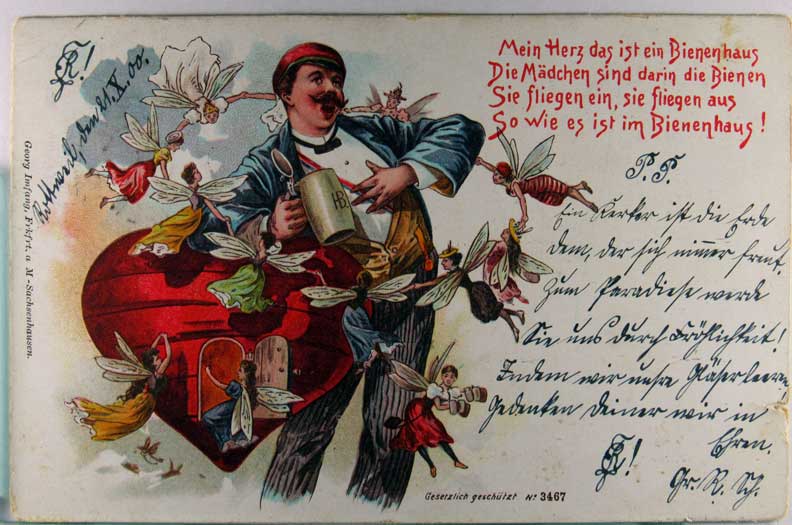 Mein Herz das ist ein Bienenhaus
Die Mädchen sind darin die Bienen
Sie fliegen ein, sie fliegen aus
So wie es ist im Bienenhaus!
Rottweil, den 21. X. 00.
P. P.
Ein Kerker ist die Erde
dem, der sich nimmer freut.
Zum Paradiese werde
Sie uns durch Fröhlichkeit!
Indem wir unsre Gläser leeren,
Gedenken deiner wir in
Ehren.
Gr. R. Sch.
HB
Georg Imfang, Frkfrt. a. M-Sachsenhausen.
Gesetzlich geschützt No 3467